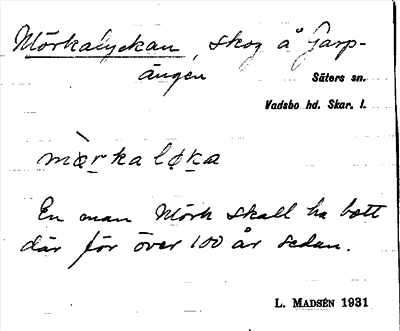 Mörkalyckan, skog å Garp-
ängen
Säters sn.
Vadsbo hd. Skar. l.
mærkaløka
En man Mörk skall ha bott
där för över 100 år sedan.
L. MADSÉN 1931